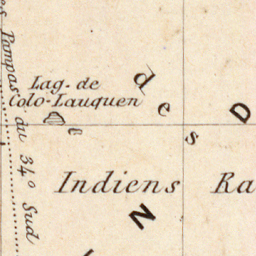 Lag. de
Colo-Lauquen
des
D
Pampas du 34° Sud
Indiens Ra
N